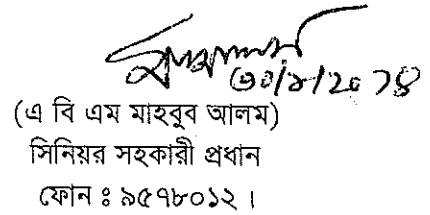 (এ বি এম মাহবুব আলম)
সিনিয়র সহকারী প্রধান
ফোন ঃ ৯৫৭৮০১২ ।